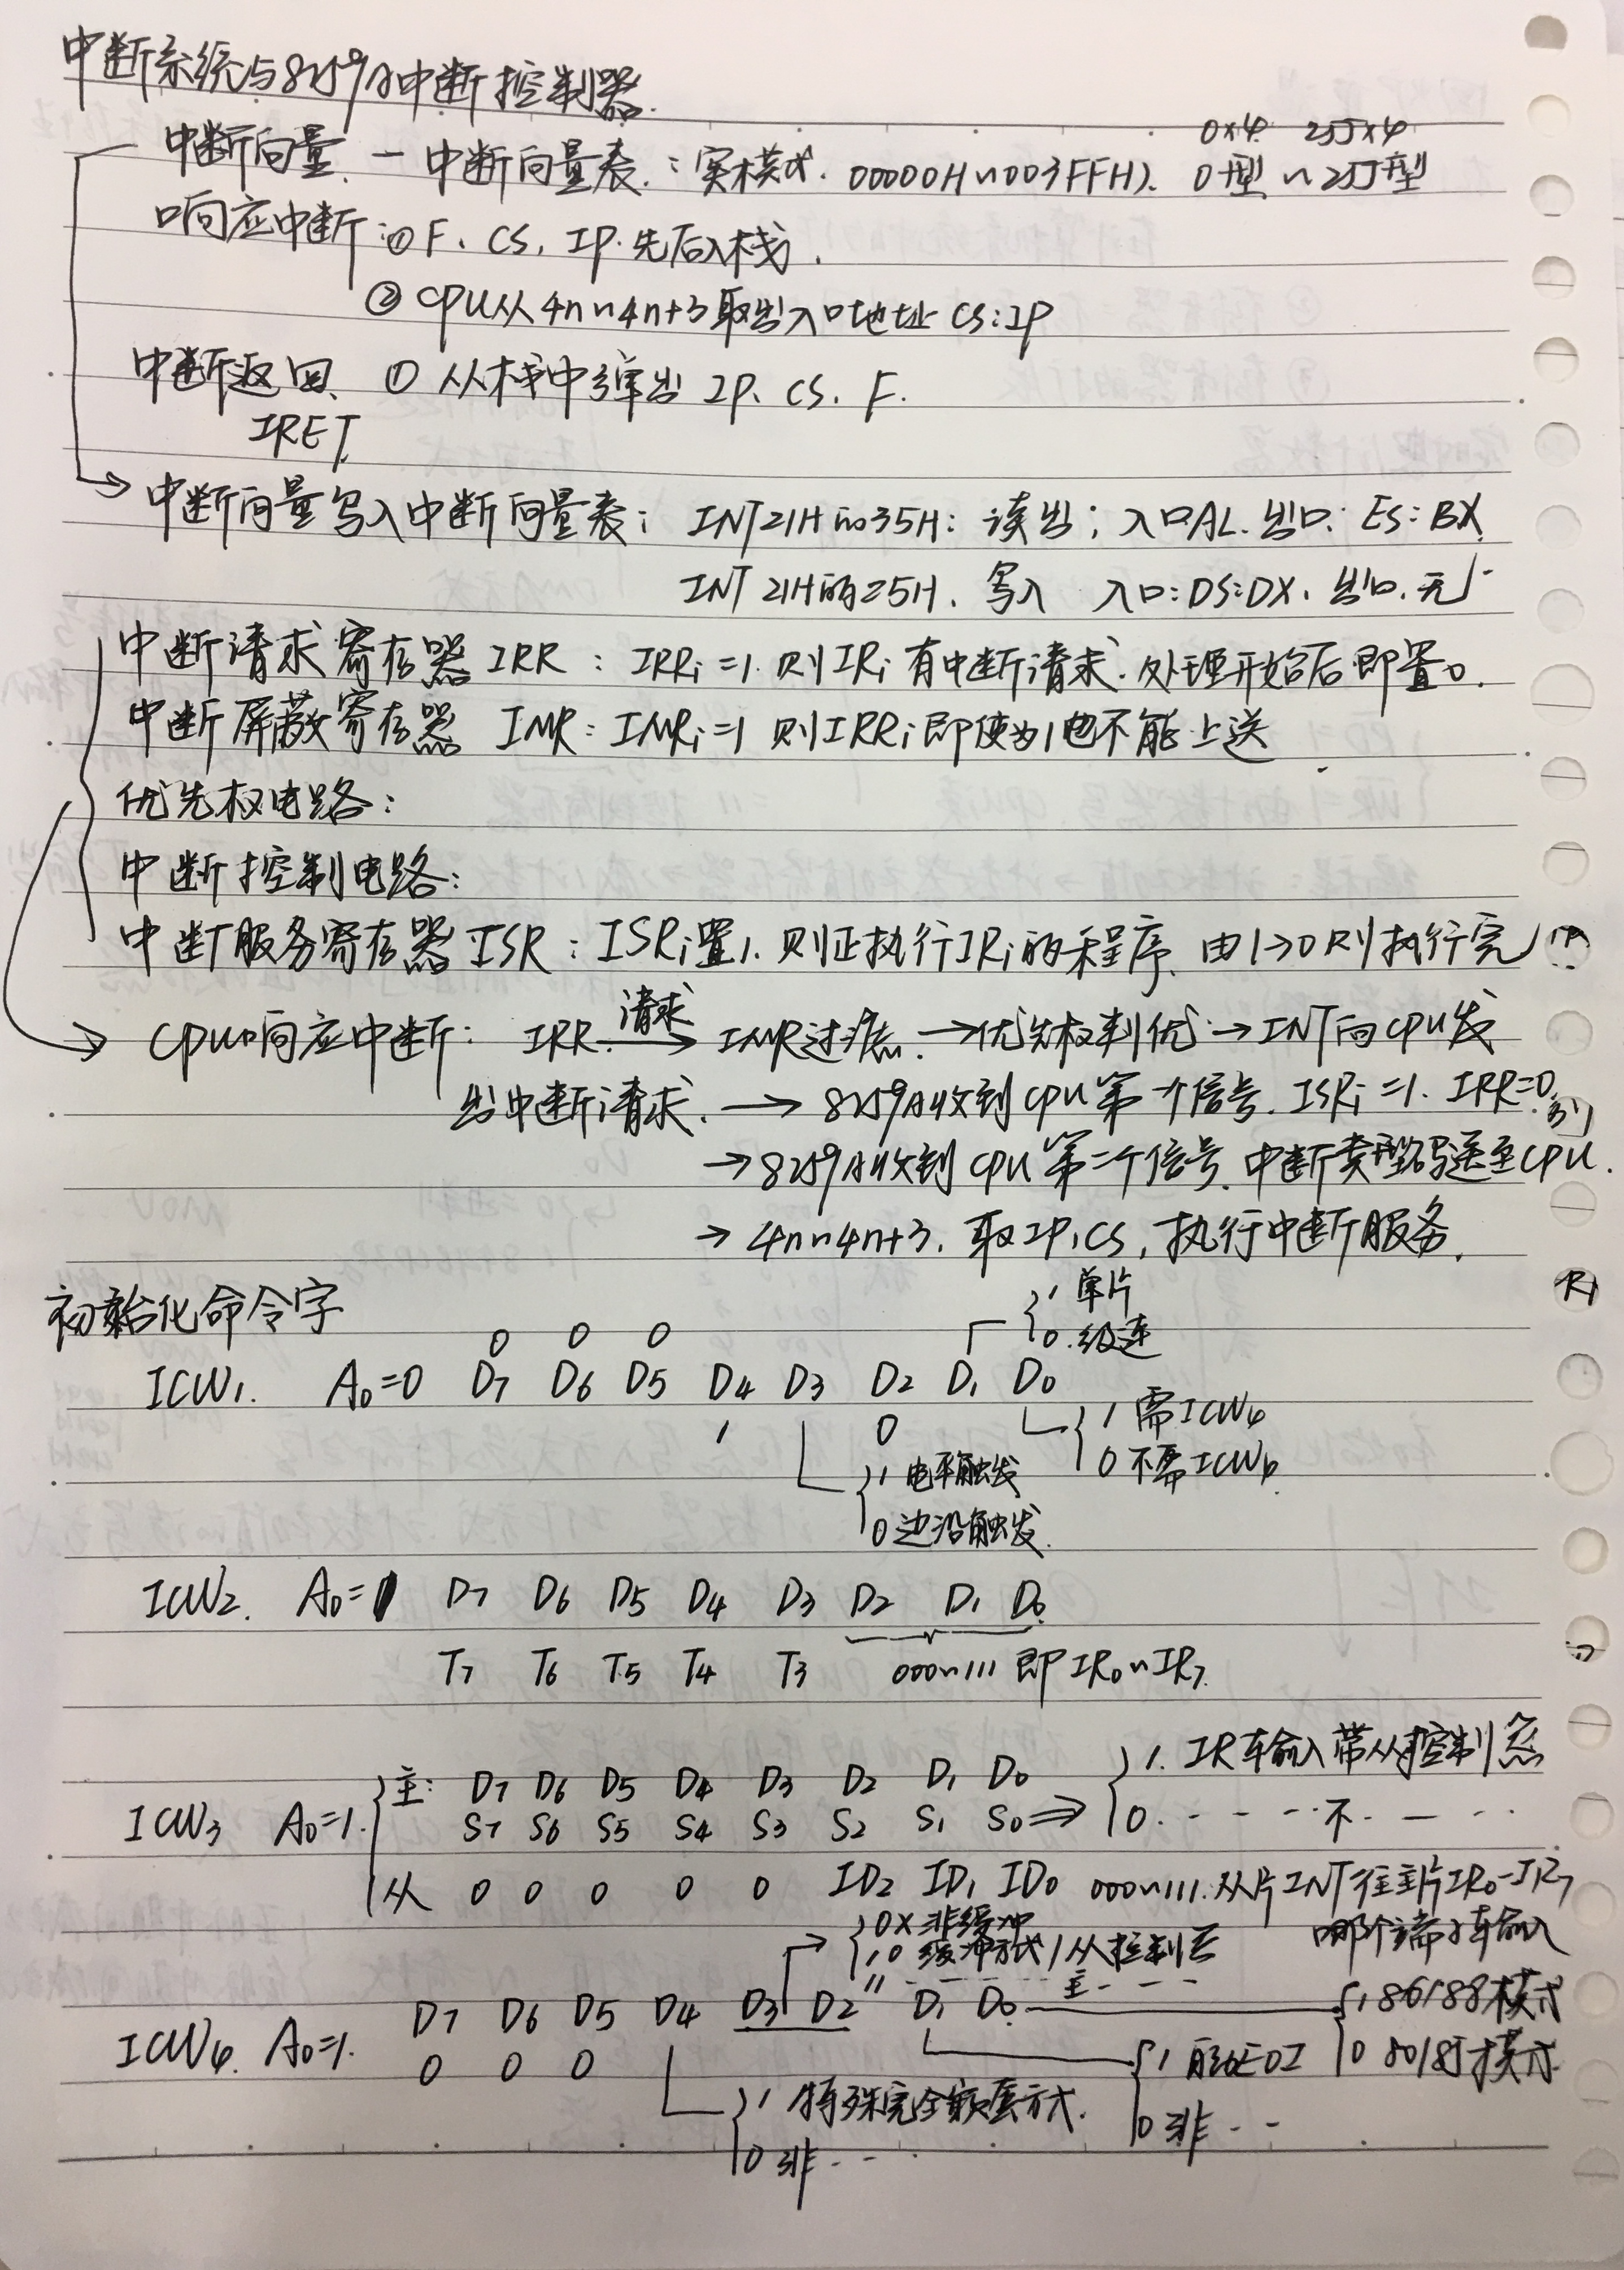 中断系统与8259A中断控制器.
0×4 255×4
中断向量 — 中断向量表:实模式. 00000H~003FFH). 0型~255型
响应中断:① F、CS、IP.先后入栈.
② CPU从4n~4n+3取出入口地址 CS:IP
中断返回 ① 从栈中弹出 IP、CS、F.
IRET
中断向量写入中断向量表: INT21H的35H: 读出; 入口AL. 出口: ES:BX
INT 21H的25H. 写入 入口:DS:DX. 出口.无
中断请求寄存器 IRR : IRRi=1. 则IRi有中断请求. 处理开始后即置0.
中断屏蔽寄存器 IMR: IMRi=1 则IRRi即使为1也不能上送
优先权电路:
中断控制电路:
中断服务寄存器 ISR : ISRi置1. 则正执行IRi的程序. 由1→0则执行完
CPU响应中断: IRR 请求→ IMR过滤. →优先权判优→INT向CPU发
出中断请求. → 8259A收到CPU第一个信号. ISRi=1. IRR=0
→8259A收到CPU第二个信号. 中断类型码送至CPU.
→ 4n~4n+3. 取IP,CS, 执行中断服务.
初始化命令字
1 单片
0 0 0
0.级连
ICW1. A0=0 D7 D6 D5 D4 D3 D2 D1 D0
1 0
1 需ICW4
0 不需ICW4
1 电平触发
0 边沿触发.
ICW2. A0=1 D7 D6 D5 D4 D3 D2 D1 D0
T7 T6 T5 T4 T3 000~111 即IR0~IR7.
主: D7 D6 D5 D4 D3 D2 D1 D0
1. IR 输入带从控制
ICW3 A0=1. S7 S6 S5 S4 S3 S2 S1 S0 ⇒ 0. - - - - 不 - — - - -
从 0 0 0 0 0 ID2 ID1 ID0 000~111. 从片INT往主片IR0-IR7
哪个端子输入
0X 非缓冲
10 缓冲方式/从控制
11 - - - - - 主 - - -
ICW4. A0=1. D7 D6 D5 D4 D3 D2 D1 D0
0 0 0
1 86/88模式
0 80/85模式
1 自动EOI
0 非 - -
1 特殊完全嵌套方式.
0 非 - - -